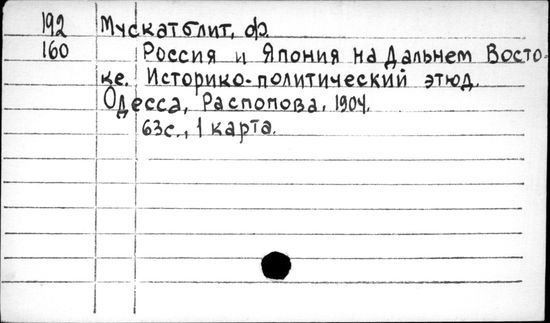 192 Мускатблит, Ф.
160 Россия и Япония на Дальнем Восто-
ке. Историко-политический этюд.
Одесса, Распопова, 1904.
63с., 1 карта.